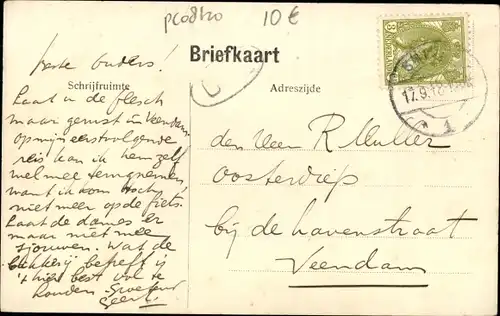 pco8120
10 €
Briefkaart
Schrijfruimte
Adreszijde
17.9.18
1
beste Ouders!
Laat u de flesch
maar gerust in Veendam
op mijn eerstvolgende
reis kan ik hem zelf
wel mee terugnemen
want ik kom toch
niet meer op de fiets.
Laat de dames er
maar niet mee
sjouwen. Wat de
betreft is
't hier best vol te
houden. Groetend
Geert.
den Heer R Muller
Oosterdiep
bij de havenstraat
Veendam